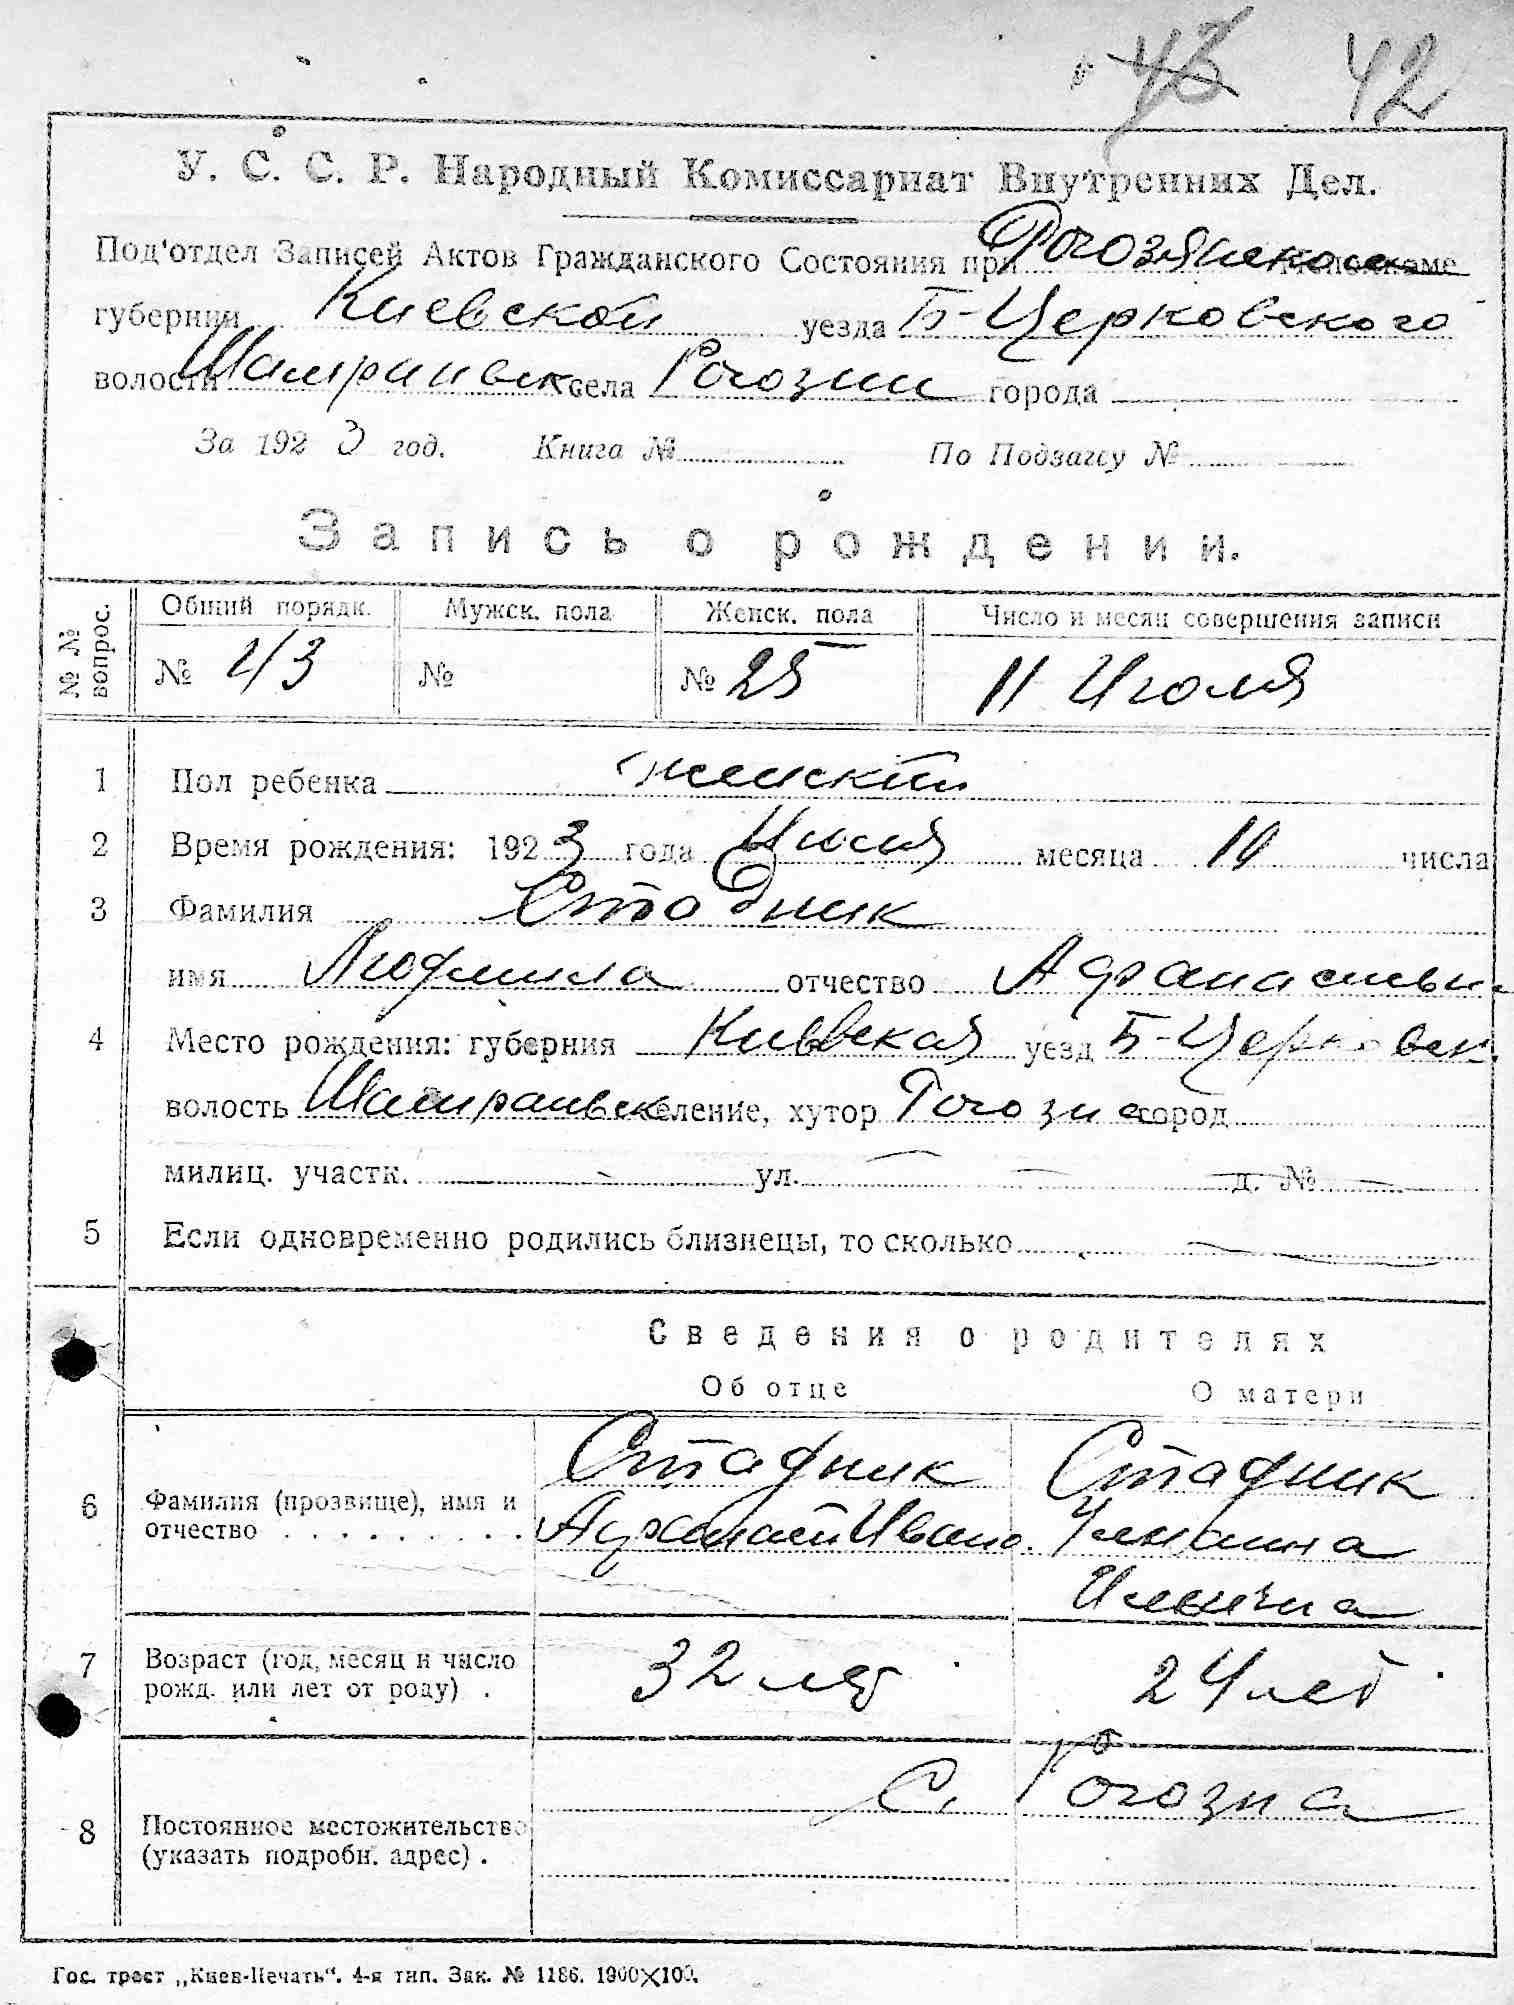 43 42
У. С. С. Р. Народный Комиссариат Внутренних Дел.
Под'отдел Записей Актов Гражданского Состояния при
губернии Киевской уезда Б-Церковского
волости села города
За 1923 год. Книга № По Подзагсу №
Запись о рождении.
№ № вопрос. Общий порядк. Мужск. пола Женск. пола Число и месяц совершения записи
№ 43 № № 25 11 Июля
1 Пол ребенка женский
2 Время рождения: 1923 года месяца числа
3 Фамилия Стадник
имя Людмила отчество
4 Место рождения: губерния Киевская уезд Б-Церковск.
волость селение, хутор Рогозна город
милиц. участк. ул. д. №
5 Если одновременно родились близнецы, то сколько
Сведения о родителях
Об отце О матери
Стадник Стадник
6 Фамилия (прозвище), имя и отчество Афанасий Ивано.
Ильинична
7 Возраст (год, месяц и число рожд. или лет от роду) . 32 лет 24 лет
С. Рогозна
8 Постоянное местожительство (указать подробн. адрес) .
Гос. трест „Киев-Печать“. 4-я тип. Зак. № 1186. 1900×100.